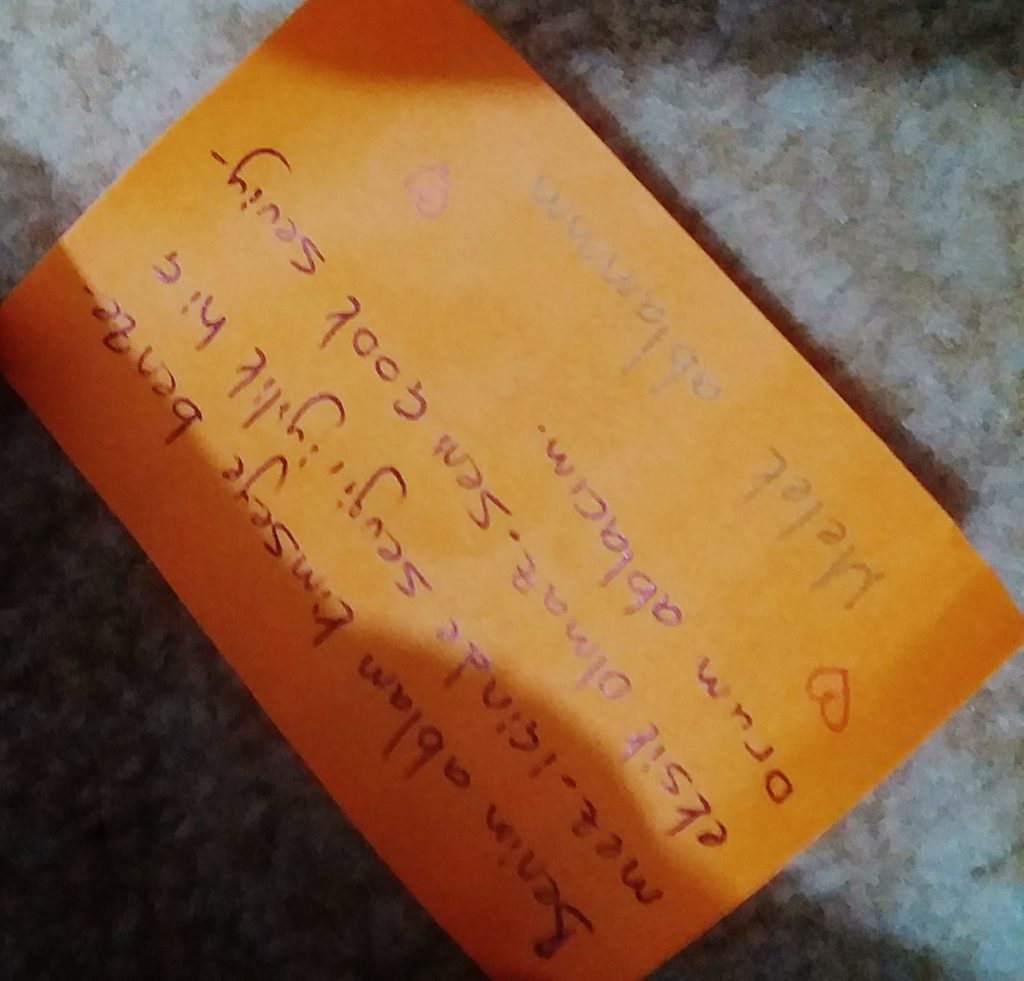 Benim ablam kimseye benze-
mez. içinde sevgi, iyilik hiç
eksik olmaz. Seni çook seviy-
orum ablacım.
♡ Melek ablamm ♡